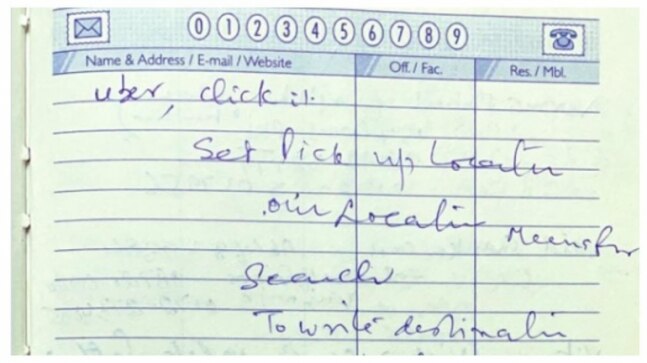 0 1 2 3 4 5 6 7 8 9
Name & Address / E-mail / Website Off. / Fac. Res. / Mbl.
uber, click it.
Set Pick up Locatin
our Locatin
Search
To write destinatin